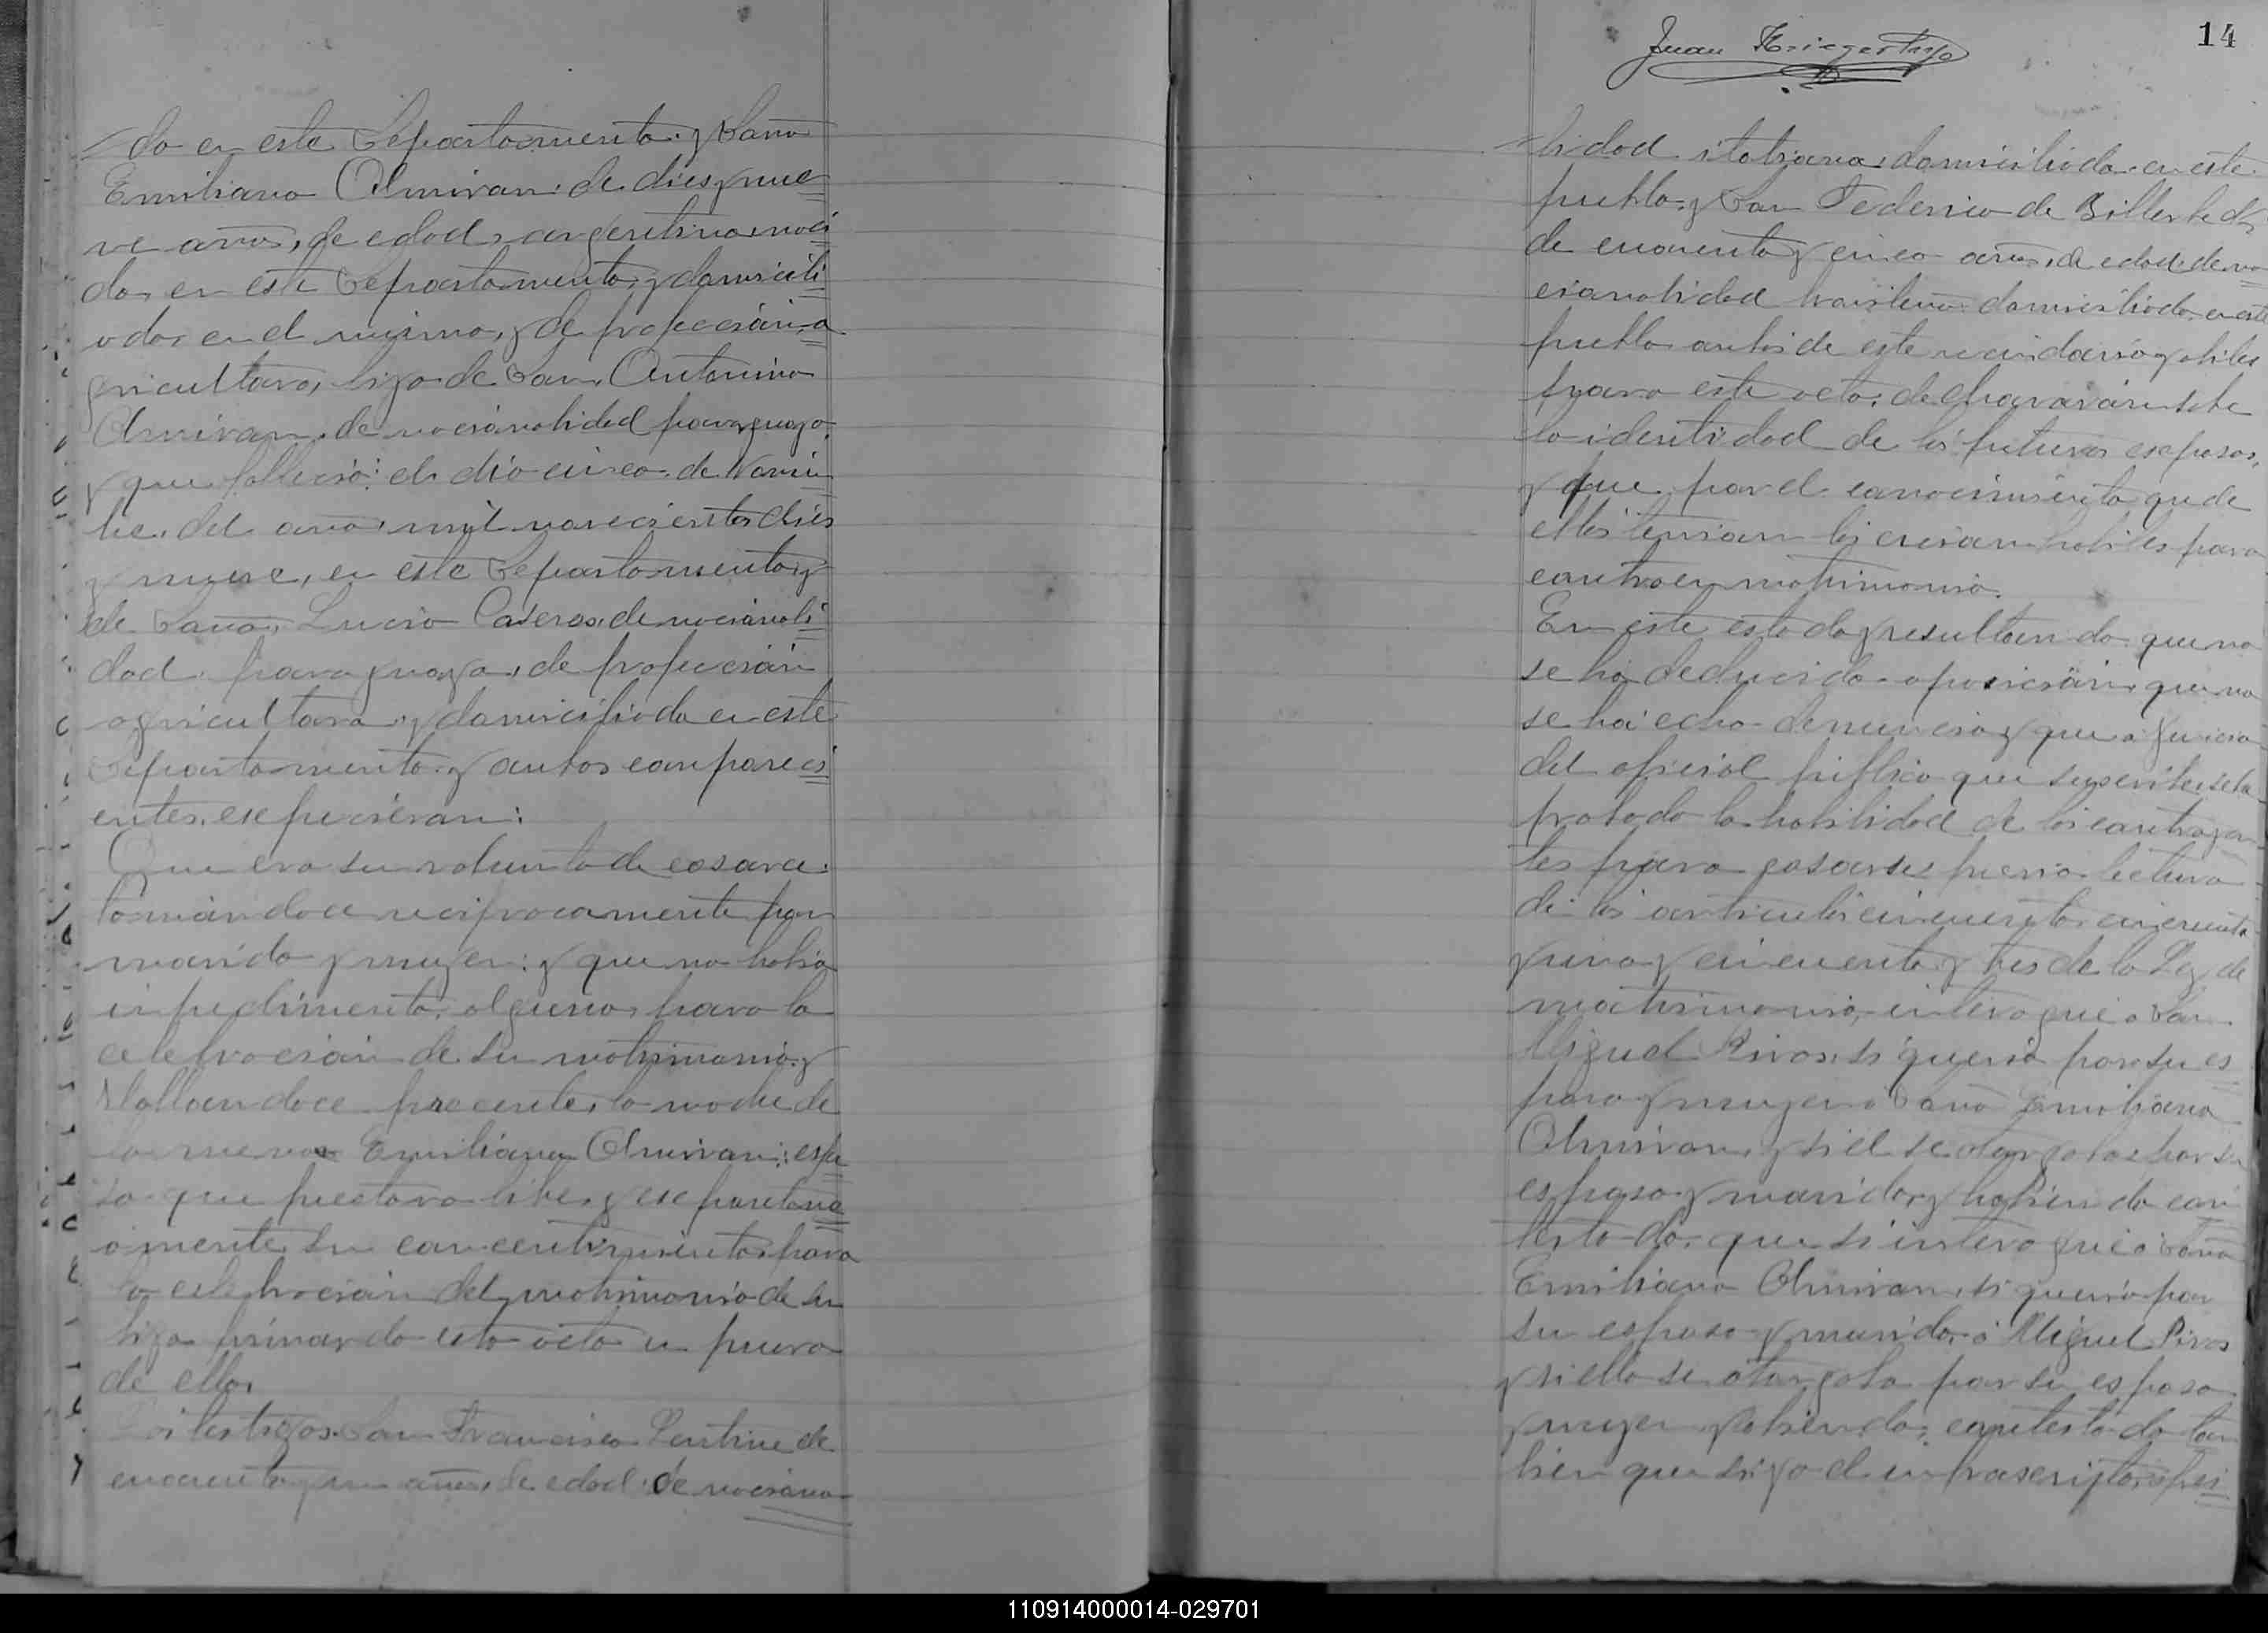 do en este Departamento y Doña
Emiliana Almiron, de dies y nue
ve años, de edad, argentina, naci
da, en este Departamento, y domicili
ada, en el mismo, y de profecion, a
gricultora, hija de Don, Antonino
Almiron, de nacionalidad paraguayo,
y que fallecio: el dia cinco de
del año, mil novecientos dies
y nueve, en este Departamento, y
de Doña, Lucia Caseros, de nacionali
dad, paraguaya, de profecion
agricultora, y domiciliada en este
Departamento. y anbos conpareci
entes, expucieron:
Que era su voluntad de casarce:
tomandoce reciprocamente por
marido y mujer: y que no habia
inpedimento, alguno, para la
celebracion de su matrimonio, y
Hallandoce precente, la madre de
la menor Emiliana Almiron: expu
so que prestava libre, y expontane
amente, su concentimiento, para
la celebracion del matrimonio de su
hija firmando esta acta en prueva
de ello,
Los testigos. Don Francisco Lentine de
cuarenta y un años, de edad, de naciona
14
Juan Krieger hijo
lidad italiana, domiciliado en este
pueblo, y Don Federico de
de cuarenta y cinco años, de edad, de na
cionalidad brasilera domiciliado, en este
pueblo anbos de este vecindario y abiles
para este acto, declararon sobre
la identidad de los futuros esposos,
y que por el conocimiento que de
ellos tenian los creian habiles para
contraer matrimonio.
En este estado y resultando que no
se ha deducido oposicion, que no
se ha echo denuncia y que a juicio
del oficial publico que suscribe, se ha
probado la habilidad de los contrayen
tes para casarse, previa lectura
de los articulos cincuenta, cincuenta
y uno y cincuenta y tres de la Ley de
matrimonio, interogue a Don
Miguel Rivas, si queria por su es
posa y mujer a Doña Emiliana
Almiron, y si el se otorgaba por su
esposo y marido, y habiendo con
testado, que si interogue a Doña
Emiliana Almiron, si queria por
su esposo y marido, á Miguel Rivas
y si ella se otorgaba por su esposa
y mujer y abiendo, contestado tan
bien que si: yo el infrascripto, ofici
110914000014-029701